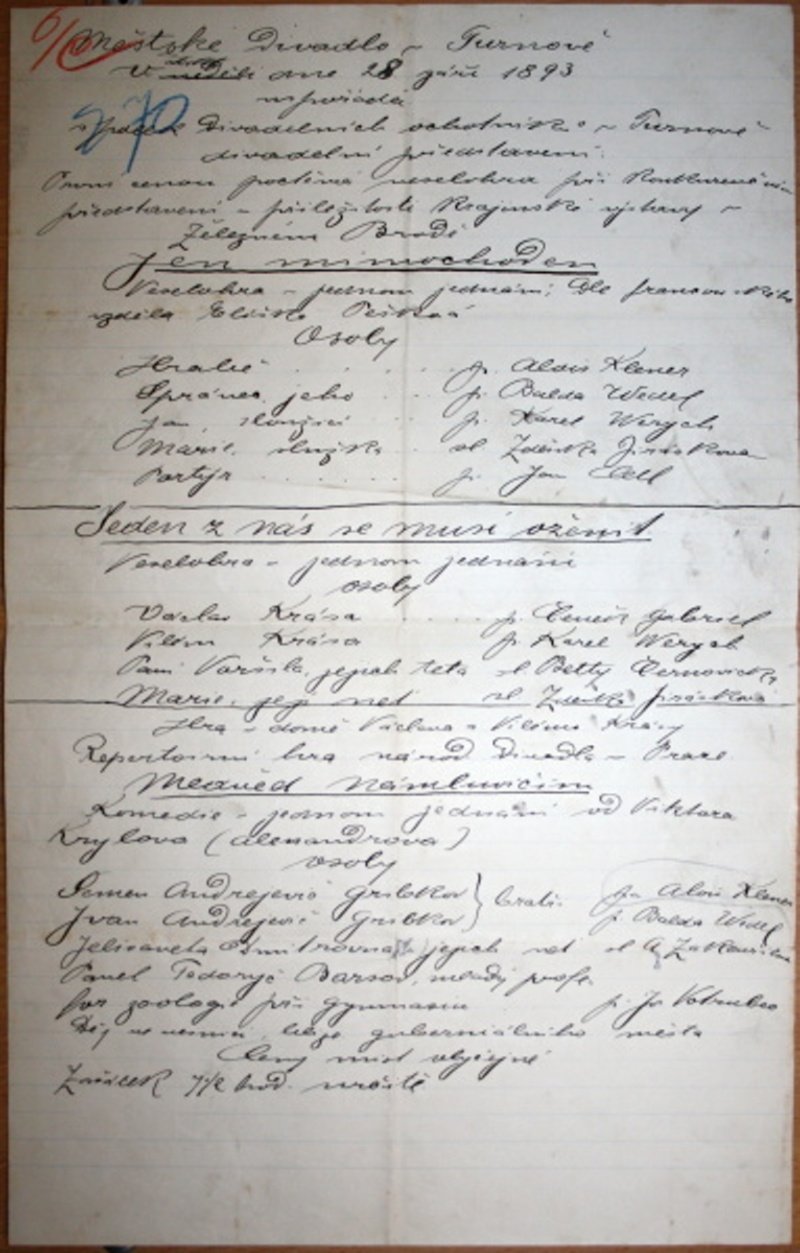 Městské Divadlo v Turnově
V neděli dne 28 září 1893
uspořádá
spolek Divadelních ochotníků v Turnově
divadelní představení.
První cenou poctěná veselohra při konkurenčním
představení v příležitosti Krajinské výstavy v
Železném Brodě
Jen mimochodem
Veselohra v jednom jednání; Dle francouzského
vzdělala Eliška Pešková
Osoby
Hrabě . . . . p. Alois Klener
Správec jeho . . . p. Balda Wedel
Jan, sloužící . . p. Karel Werych
Marie, služka . . sl. Zdeňka Jiráskova
Portýr . . . . . p. Jan
Jeden z nás se musí oženit
Veselohra v jednom jednání
osoby
Václav Krása . . . . p. Čeněk Gabriel
Vilém Krása p. Karel Werych
Paní Voršila, jejich teta sl. Betty Černovická
Marie, její neť sl. Zdeňka Jirásková
Hra v domě Václava a Viléma Krásy
Repertoirní hra národ. Divadla v Praze.
Medvěd námluvčím
Komedie v jednom jednání od Viktora
Krylova (Alexandrova)
osoby
Semen Andrejevič Gribkov } bratři. p. Alois Klener
Ivan Andrejevič Gribkov p. Balda Wedel
Jelisaveta Dmitrovna, jejich neť sl
Pavel Fedoryč Barsov, mladý profe-
sor zoologie při gymnasiu p. Jos Votrubec
Děj ve vesnici, blíže guberniálního města
Ceny míst obyčejné
Začátek 7½ hod. určitě